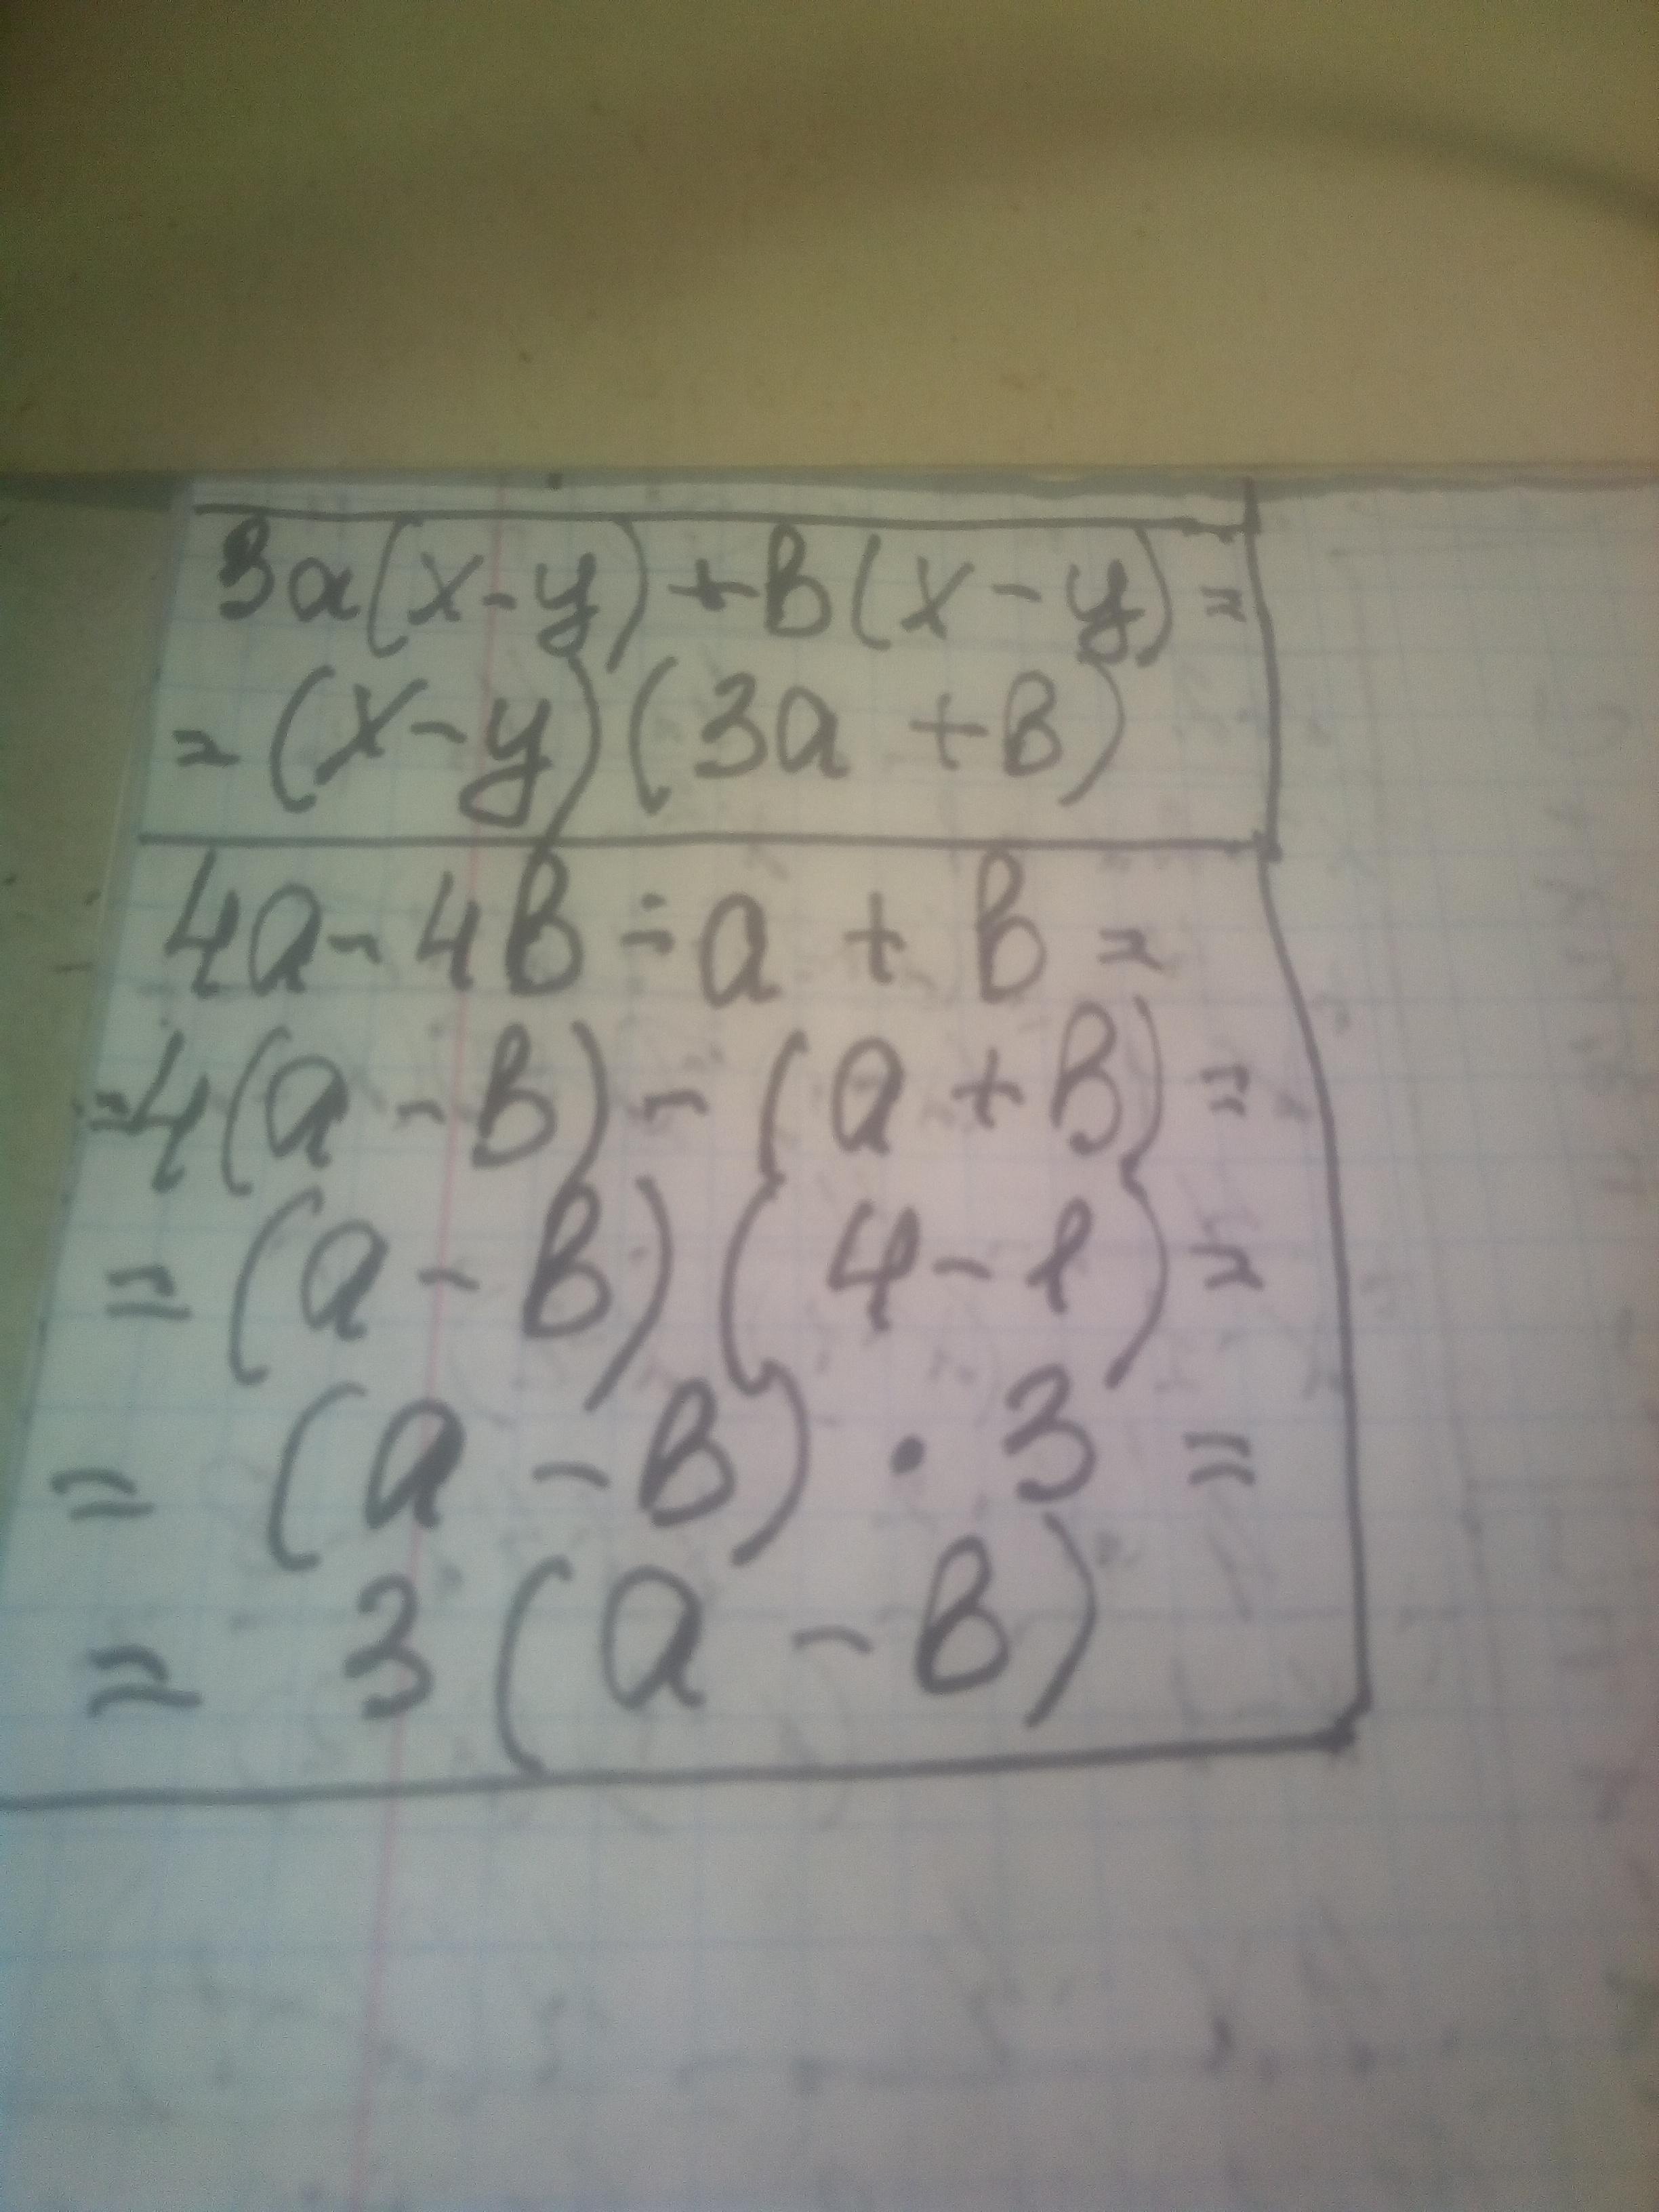 3a(x-y)+B(x-y)=
=(x-y)(3a+B)
4a-4B-a+B=
=4(a-B)-(a+B)=
=(a-B)(4-1)=
=(a-B)·3=
=3(a-B)